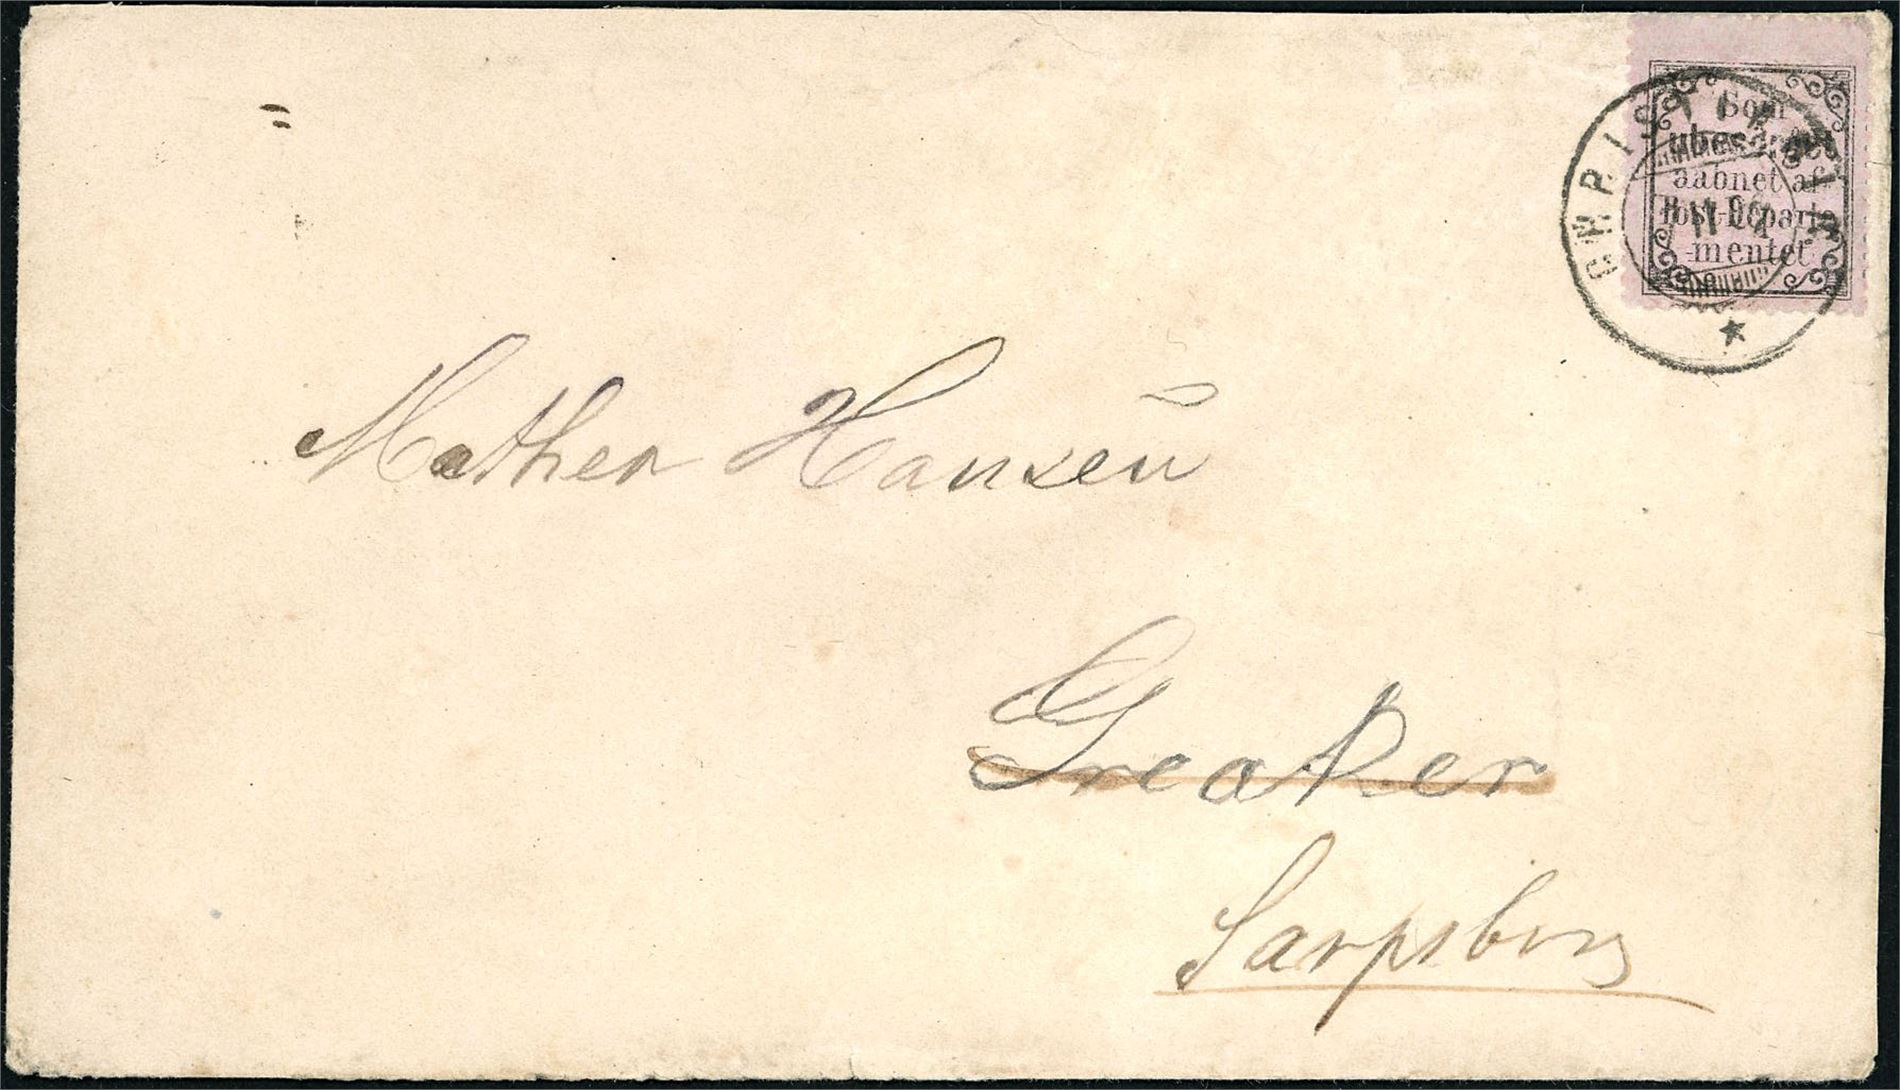 Som
ubesørget
aabnet af
Post-Departe
mentet
CHRISTIANIA
Mathea Hansen
Greaker
Sarpsborg